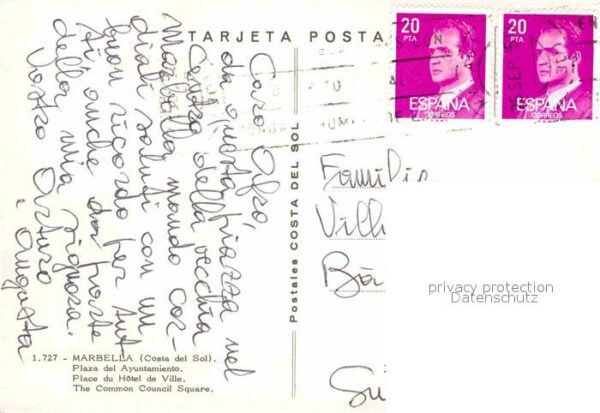 TARJETA POSTA
Caro Afro,
da questa piazza nel
centro della vecchia
Marbella mando cor-
diali saluti con un
buon ricordo per tut
ti anche da parte
della mia signora.
Vostro Arturo
e Augusta
1.727 - MARBELLA (Costa del Sol).
Plaza del Ayuntamiento.
Place du Hôtel de Ville.
The Common Council Square.
Postales COSTA DEL SOL
20
PTA
ESPAÑA
CORREOS
20
PTA
ESPAÑA
CORREOS
SEP
Famili
Vill
Bà
privacy protection
Datenschutz